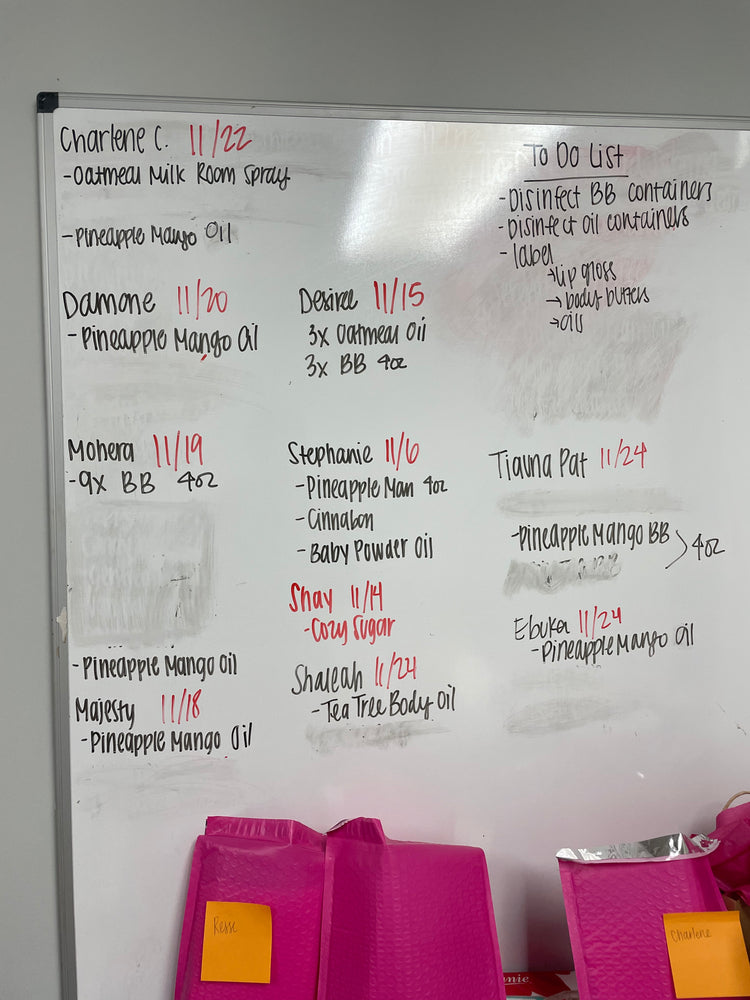 Charlene C. 11/22
-Oatmeal Milk Room Spray
-Pineapple Mango Oil
Damone 11/20
-Pineapple Mango Oil
Mohera 11/19
-9x BB 4oz
-Pineapple Mango Oil
Majesty 11/18
-Pineapple Mango Oil
Desiree 11/15
3x Oatmeal Oil
3x BB 4oz
Stephanie 11/6
-Pineapple Man 4oz
-Cinnabon
-Baby Powder Oil
Shay 11/14
-Cozy Sugar
Shaleah 11/24
-Tea Tree Body Oil
To Do List
-Disinfect BB containers
-Disinfect Oil containers
-label
→lip gloss
→body butters
→oils
Tiauna Pat 11/24
-Pineapple Mango BB
4oz
Ebuka 11/24
-Pineapple Mango Oil
Resse
Charlene